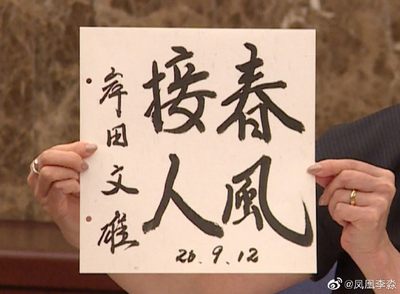 春風
接人
岸田文雄
26.9.12
@凤凰李淼